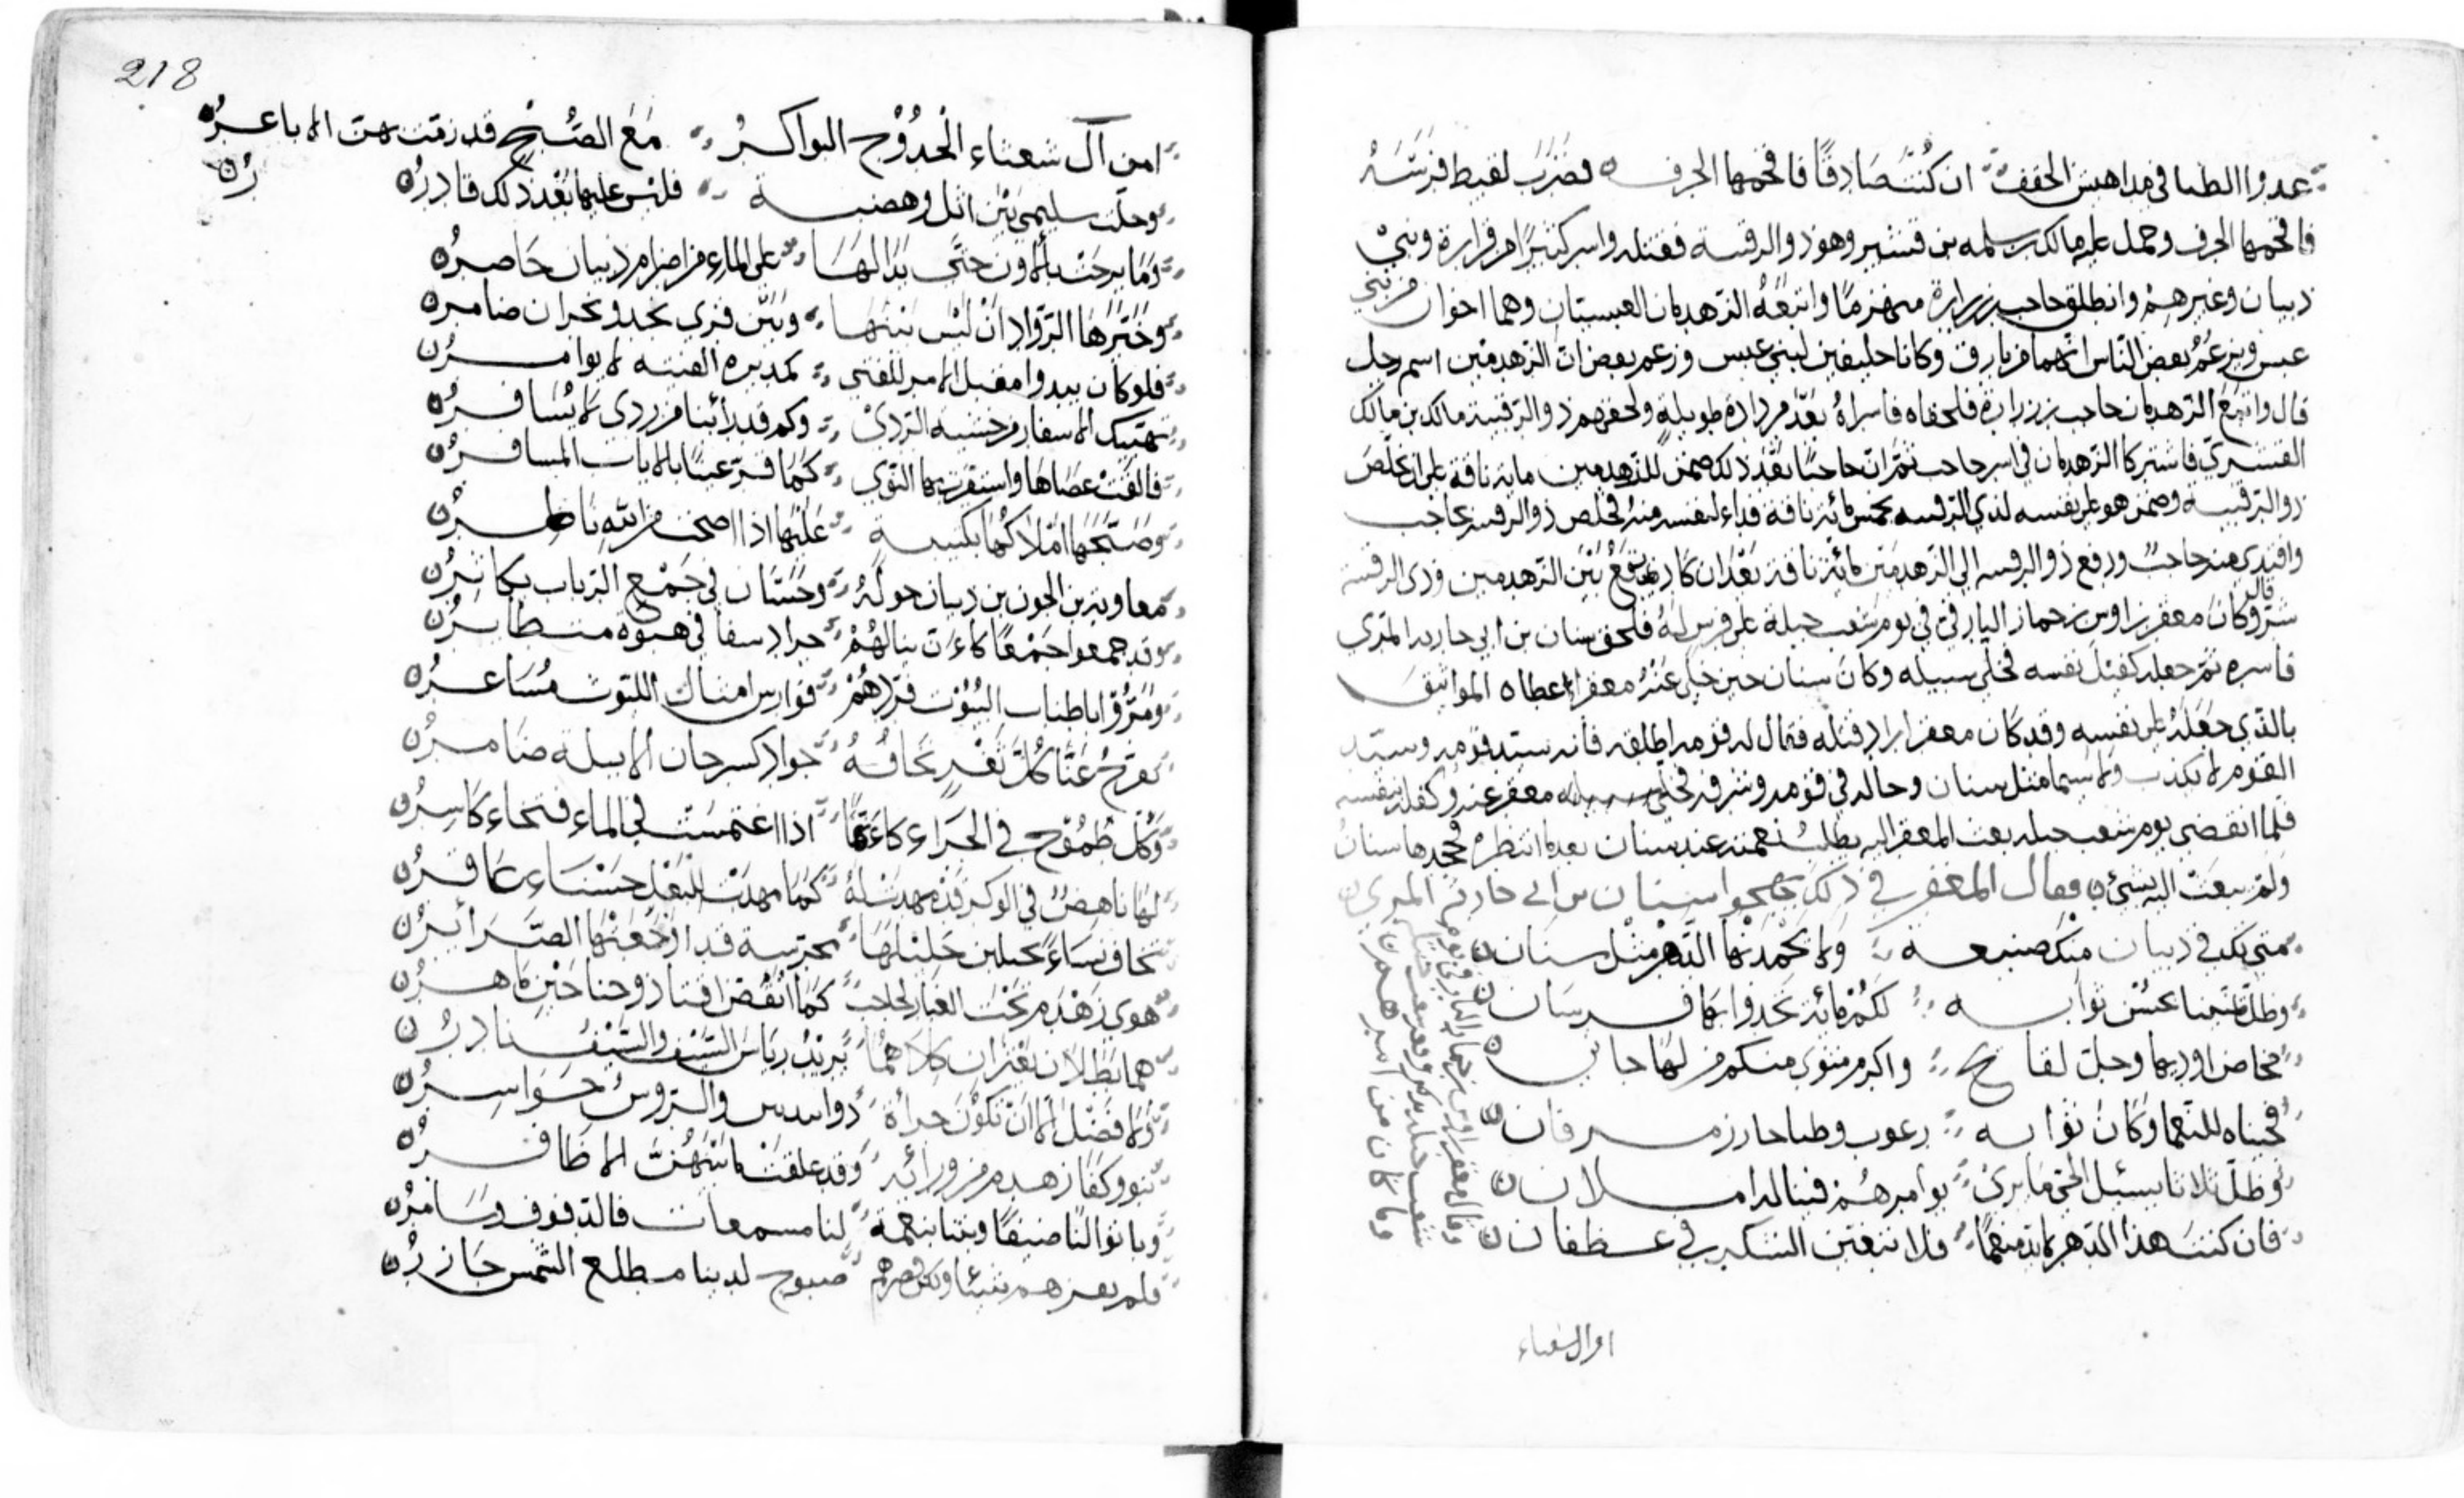 عدوا الظبا في مداهيس الخفف ان كُنتَ صَادقًا فاقحمها الجرف ه فضَرَبَ لقيط فرَسَهُ
فاقحمها الجرف وحمل عليه مالك بن سلمه بن قشير وهو ذو الرقيبة فقتله واسر كثيرًا من فزارة وبني
ذبيان وغيرهم وانطلق حاجب بن زرارة منهزمًا واتبعَهُ الزهدمان العبسيان وهما اخوان من بني
عبس ويزعمُ بعض الناس انهما من بارق وكانا حليفين لبني عبس وزعم بعض ان الزهدمين اسم رجل
قال واتبع الزهدمان حاجب بن زرارة فلحقاه فاسراهُ بعد مرادة طويلة ولحقهم ذو الرقيبة مالك بن مالك
القشيري فاشتركا الزهدمان في اسر حاجب ثم ان حاجبًا بعد ذلك ضمن للزهدمين مايه ناقة على ان خلص
ذو الرقيبه وضمن هو على نفسه لذي الرقيبه بخمس مائه ناقة فداء لنفسه منهُ فخلص ذو الرقيبه حاجب
وافتدي منه حاجبٌ ودفع ذو الرقيبه الي الزهدمين مائة ناقة بعد ان كاد يقعُ بين الزهدمين وذي الرقيبة
قال
شرٌّ وكان معقر بن اوس بن حمار البارقي في يوم شعب جبلة على فرس لهُ فلحق سنان بن ابي حارثه المري
فاسره ثم جعله كفيل نفسه فخلى سبيله وكان سنان حين خلى عنهُ معقر اعطاه المواثيق
بالذي جعَلهُ على نفسه وقد كان معقر اراد قتله فقال له قومه اطلقه فانه سيد قومه وسيد
القوم لا يكذب ولا سيما مثل سنان وحاله في قومه وشرفه فخلى سبيله معقر عنه وكفله نفسه
فلما انقضى يوم شعب جبله بعث المعقر اليه يطلب نعمته عند سنان بعدما انتظره فجحدها سنان
ولم يبعث اليه بشيء فقال المعقر في ذلك يهجوا سنان بن ابي حارثه المري
متى تك في ذبيان منك صنيعة ولا تحمدنها الدهر مثل سنان
وظل يمنينا بحُسْن ثوابه لكم مائة يحدوا بها فرسان
مخاض اوديها وجل لقائح واكرم مثوى منكم من لها جاني
فجيناه للنعما وكان ثوابه رعوب ووطبا حازر مسرفان
وظل ثلاثا يسئل الحي ما يرى يوامرهُم فينا له املان
فان كنت هذا الدهر لابد منعمًا فلا تبغين الشكر في غطفان
وقال معقر بن اوس بن حمار البارقي في يوم
شعب جبله
وما كان من امرهم
امن ال شعثاء
218
امن آل شعثاء الحُدُوْج البواكرُ مَعَ الصُبْح قد زمت بهن الاباعرُ
وحلت سليمى بين اثل وهضبة فليس عليها بعد ذلك قادرُ
وما برحت بالاون حتَّى بدا لها على الماءِ من اضرام ذبيان حَاصرُ
وخبَّرَها الروّاد ان ليس بينها وبين قرى نجد ونجران ضامر
فلو كان يبدوا مقبل الامر للفتى كمدبره الفيته لا يوامرُ
تهيبك الاسفار من خشية الردى وكم قد رأينا من ردى لا يُسَافرُ
فالقت عصَاهَا واستقرت بها النوى كمَا قرّ عينًا بالاياب المسافرُ
وصَبَّحَهَا املاكُهَا بكتيبةٍ عَليْها اذا اصحت من الله ناظرُ
معاوية بن الجون بن ذبيان حولهُ وحسَّان في جَمْع الرباب يكاثرُ
وقد جمعوا جَمْعًا كاءَنَ نبالهُمْ جراد سفا في هبوة متطايرُ
ومَرُّوا باطناب البُيُوْت فردهُمْ فوارس امثال الليوث مُسَاعرُ
يفرّجُ عَنّا كلّ ثغرٍ نخافُهُ جواد كسرحان الابيلة ضامرُ
وكُلّ طمُوْح في الجراءِ كاءَنّها اذا اغتمسَت في الماء فتخاء كاسِرُ
لهَا ناهض في الوكر قد مهدت لهُ كمَا مهدت للبَعْل حسْنَاء عَاقرُ
تخاف نسَاءً يحلين حليلهَا محرّبة قد ارجعتها الضَرَائرُ
هوى زَهْدم تحتَ الغبار لحاجبٍ كما انقضّ اقنا ذو جناحَيْنِ مَاهرُ
هما بَطَلان يعثران كِلاهُمَا يُريْدُ رِيَاسَ السَيْف والسَيْفُ نادرُ
ولا فضل الا ان تكُوْن جرأة ذوابيدين والرؤس حَوَاسِرُ
ينوء وكفا زهدم من ورائه وقد علقت ما بينهُنّ الاظافرُ
وباتوا لنا ضيفًا وبتنا بنعمة لنا مسمعات فالدفوف وسَامرُ
فلم يقرهم شيئا ولكن قصرهم صبوح لدينا مطلع الشمس حَازرُ